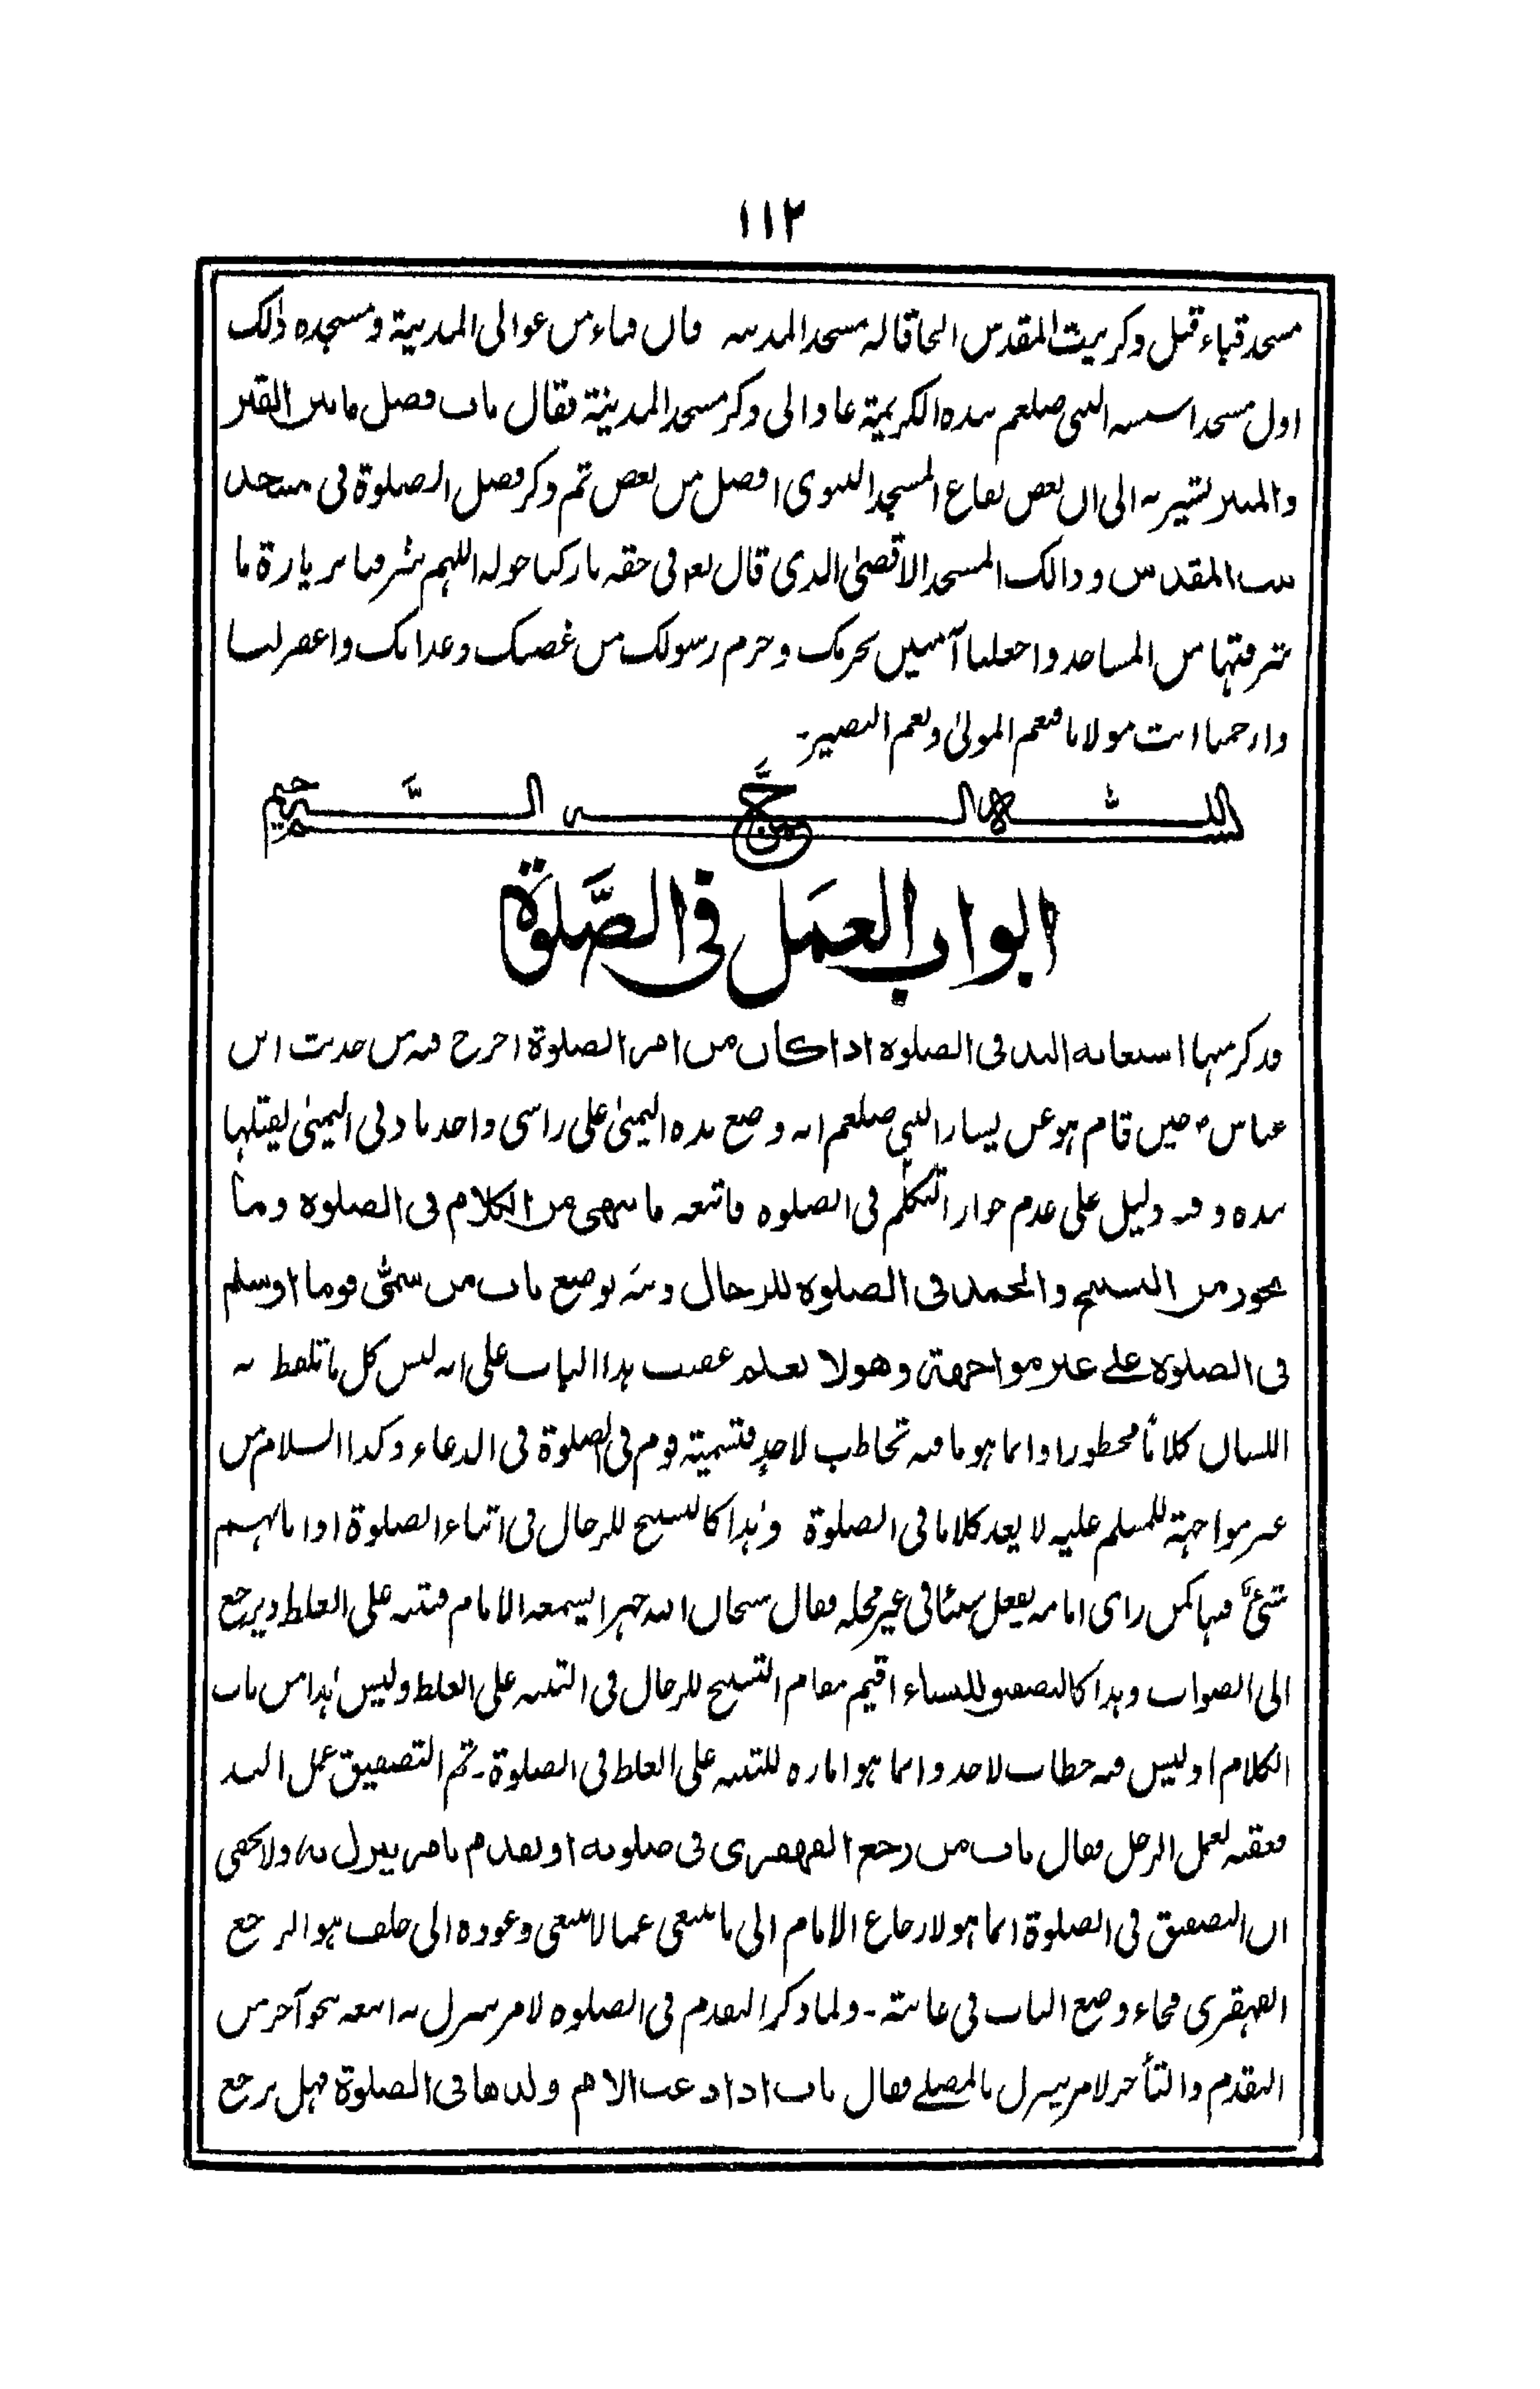 ١١٢
مسجد قباء قبل ذكر بيت المقدس الحاقا له بمسجد المدينة فان قباء من عوالى المدينة ومسجده ذلك
اول مسجد اسسه النبى صلعم بيده الكريمة عاد الى ذكر مسجد المدينة فقال باب فضل ما بين القبر
والمنبر يشير به الى ان بعض بقاع المسجد النبوى افضل من بعض ثم ذكر فضل الصلوة فى مسجد
بيت المقدس و ذالك المسجد الاقصىٰ الذى قال تع فى حقه باركنا حوله اللهم شرفنا بزيارة ما
شرفتها من المساجد واجعلنا آمنين بحرمك وحرم رسولك من غضبك وعذابك واغفر لنا
وارحمنا انت مولانا فنعم المولىٰ ونعم النصير۔
بسم الله الرحمن الرحيم
ابواب العمل فى الصلوة
فذكر منها استعانه اليد فى الصلوة اذا كان من امر الصلوة اخرج فيه من حديث ابن
عباس رض حين قام هو عن يسار النبى صلعم انه وضع يده اليمنىٰ على راسى واخذ باذنى اليمنىٰ يفتلها
بيده وفيه دليل على عدم جواز التكلم فى الصلوه فاتبعه ما ينهى من الكلام فى الصلوه وما
يجوز من التسبيح والحمد فى الصلوة للرجال وبينه بوضع باب من سمّى قوما او سلم
فى الصلوة على غير مواجهة وهو لا يعلم عقيب هذا الباب على انه ليس كل ما تلفظ به
اللسان كلاماً محظورا وانما هو ما فيه تخاطب لاحدٍ فتسمية قوم فى الصلوة فى الدعاء وكذا السلام من
غير مواجهة للمسلم عليه لا يعد كلاما فى الصلوة وهذا كالتسبيح للرجال فى اثناء الصلوة اذا نابهم
شئ فيها كمن راى امامه يفعل شيئا فى غير محله فقال سبحان الله جهرا ليسمعه الامام فيتنبه على الغلط ويرجع
الى الصواب وهذا كالتصفيق للنساء اقيم مقام التسبيح للرجال فى التنبيه على الغلط وليس هذا من باب
الكلام اذ ليس فيه خطاب لاحد وانما هو اماره للتنبيه على الغلط فى الصلوة۔ ثم التصفيق عمل اليد
فعقبه بعمل الرجل فقال باب من رجع القهقرى فى صلوته او تقدم بامر ينزل به ولا يخفى
ان التصفيق فى الصلوة انما هو لارجاع الامام الى ما ينبغى عما لا ينبغى وعوده الى خلف هو الرجع
القهقرى فجاء وضع الباب فى غايته۔ ولما ذكر التقدم فى الصلوه لامر ينزل به اتبعه نحو آخر من
التقدم والتأخر لامر ينزل بالمصلے فقال باب اذا دعت الام ولدها فى الصلوة فهل يرجع